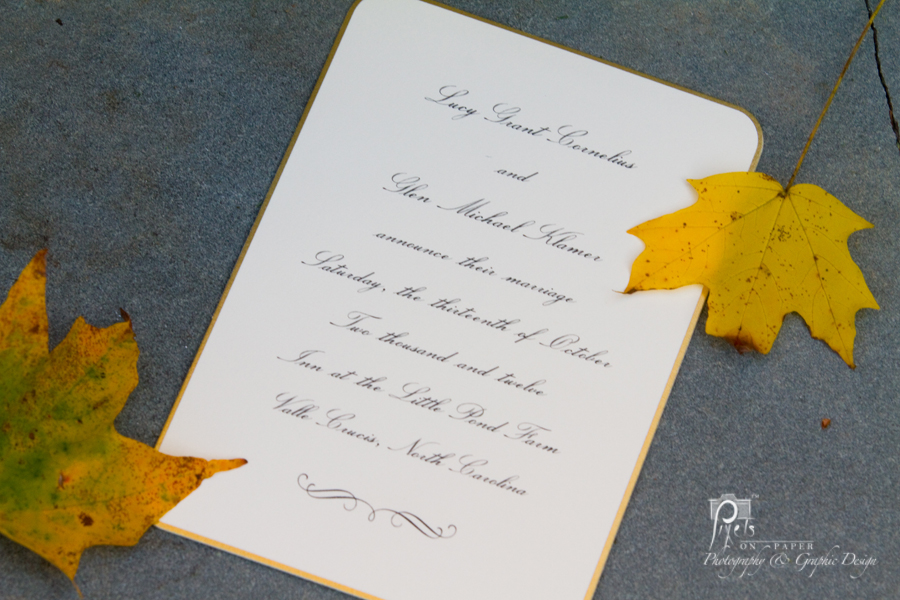 Lucy Grant Cornelius
and
Glen Michael Klamer
announce their marriage
Saturday, the thirteenth of October
Two thousand and twelve
Inn at the Little Pond Farm
Valle Crucis, North Carolina
Pixels
ON PAPER
Photography & Graphic Design